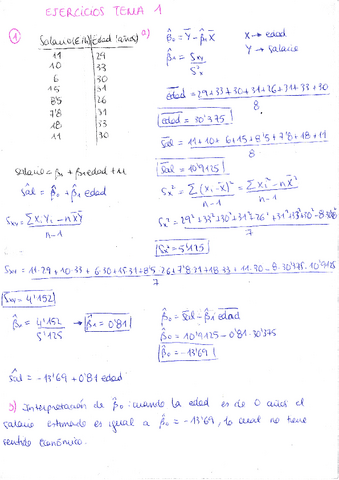 EJERCICIOS TEMA 1
① a)
Salario (€/h) Edad (años)
11 29
10 33
6 30
15 31
8'5 26
7'8 31
18 33
11 30
β̂₀ = Ȳ - β̂₁X̄
β̂₁ = Sxy / S²x
X → edad
Y → salario
edad = 29+33+30+31+26+31+33+30 / 8
edad = 30'375
sal = 11+10+6+15+8'5+7'8+18+11 / 8
sal = 10'9125
Sx² = Σ(xᵢ-x̄)² / n-1 = Σxᵢ² - nx̄² / n-1
salario = β₀ + β₁ edad + u
sâl = β̂₀ + β̂₁ edad
Sxy = ΣXᵢYᵢ - nX̄Ȳ / n-1
Sx² = 29²+33²+30²+31²+26²+31²+33²+30² - 8·30'375² / 7
Sx² = 5'125
Sxy = 11·29 + 10·33 + 6·30 + 15·31 + 8'5·26 + 7'8·31 + 18·33 + 11·30 - 8·30'375·10'9125 / 7
Sxy = 4'152
β̂₁ = 4'152 / 5'125 → β̂₁ = 0'81
β̂₀ = sal - β̂₁ edad
β̂₀ = 10'9125 - 0'81·30'375
β̂₀ = -13'69
sâl = -13'69 + 0'81 edad
b) Interpretación de β̂₀: cuando la edad es de 0 años el
salario estimado es igual a β̂₀ = -13'69, lo cual no tiene
sentido económico.